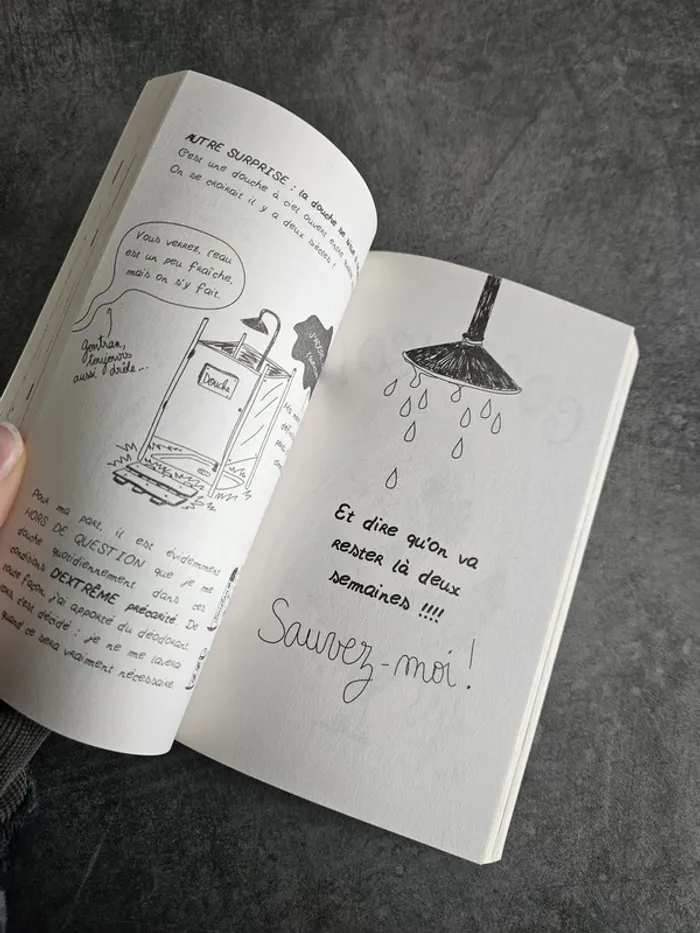 AUTRE SURPRISE : la douche se
C'est une douche à ciel ouvert entre
On se croirait il y a deux siècles !
Vous verrez, l'eau
est un peu fraîche,
mais on s'y fait.
Gontran,
toujours
aussi drôle...
Douche
J'ADORE
Pour ma part, il est évidemment
HORS DE QUESTION que je me
douche quotidiennement dans ces
conditions D'EXTRÊME précarité. De
toute façon, j'ai apporté du déodorant.
c'est décidé : je ne me laverai
quand ce sera vraiment nécessaire.
Et dire qu'on va
rester là deux
semaines !!!!
Sauvez-moi !